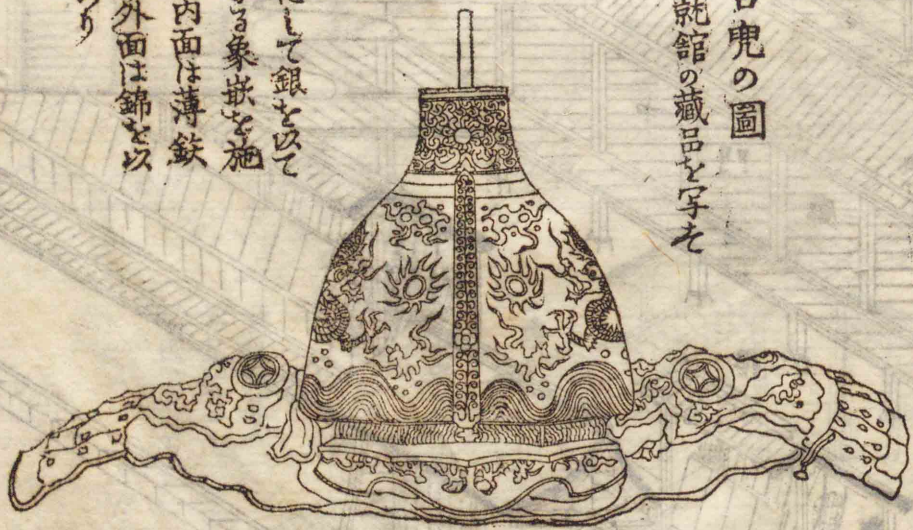 兜の圖
就館の藏品を写す
して銀を以て
る象嵌を施
内面は薄鉄
外面は錦を以
り